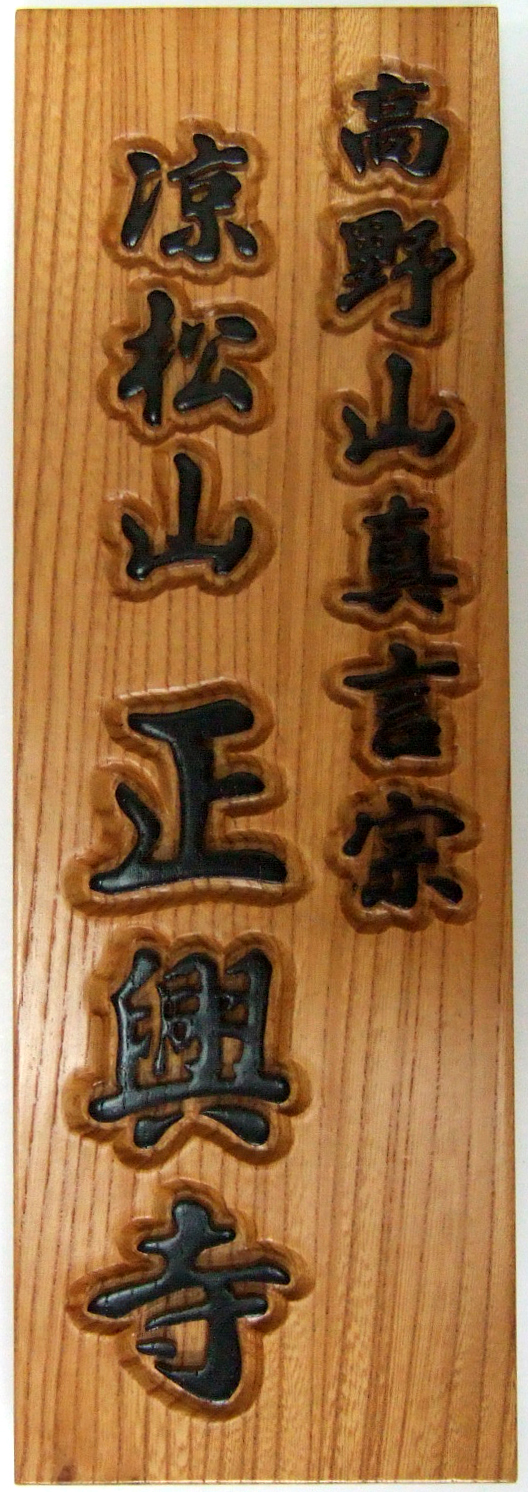 高野山真言宗
凉松山 正興寺